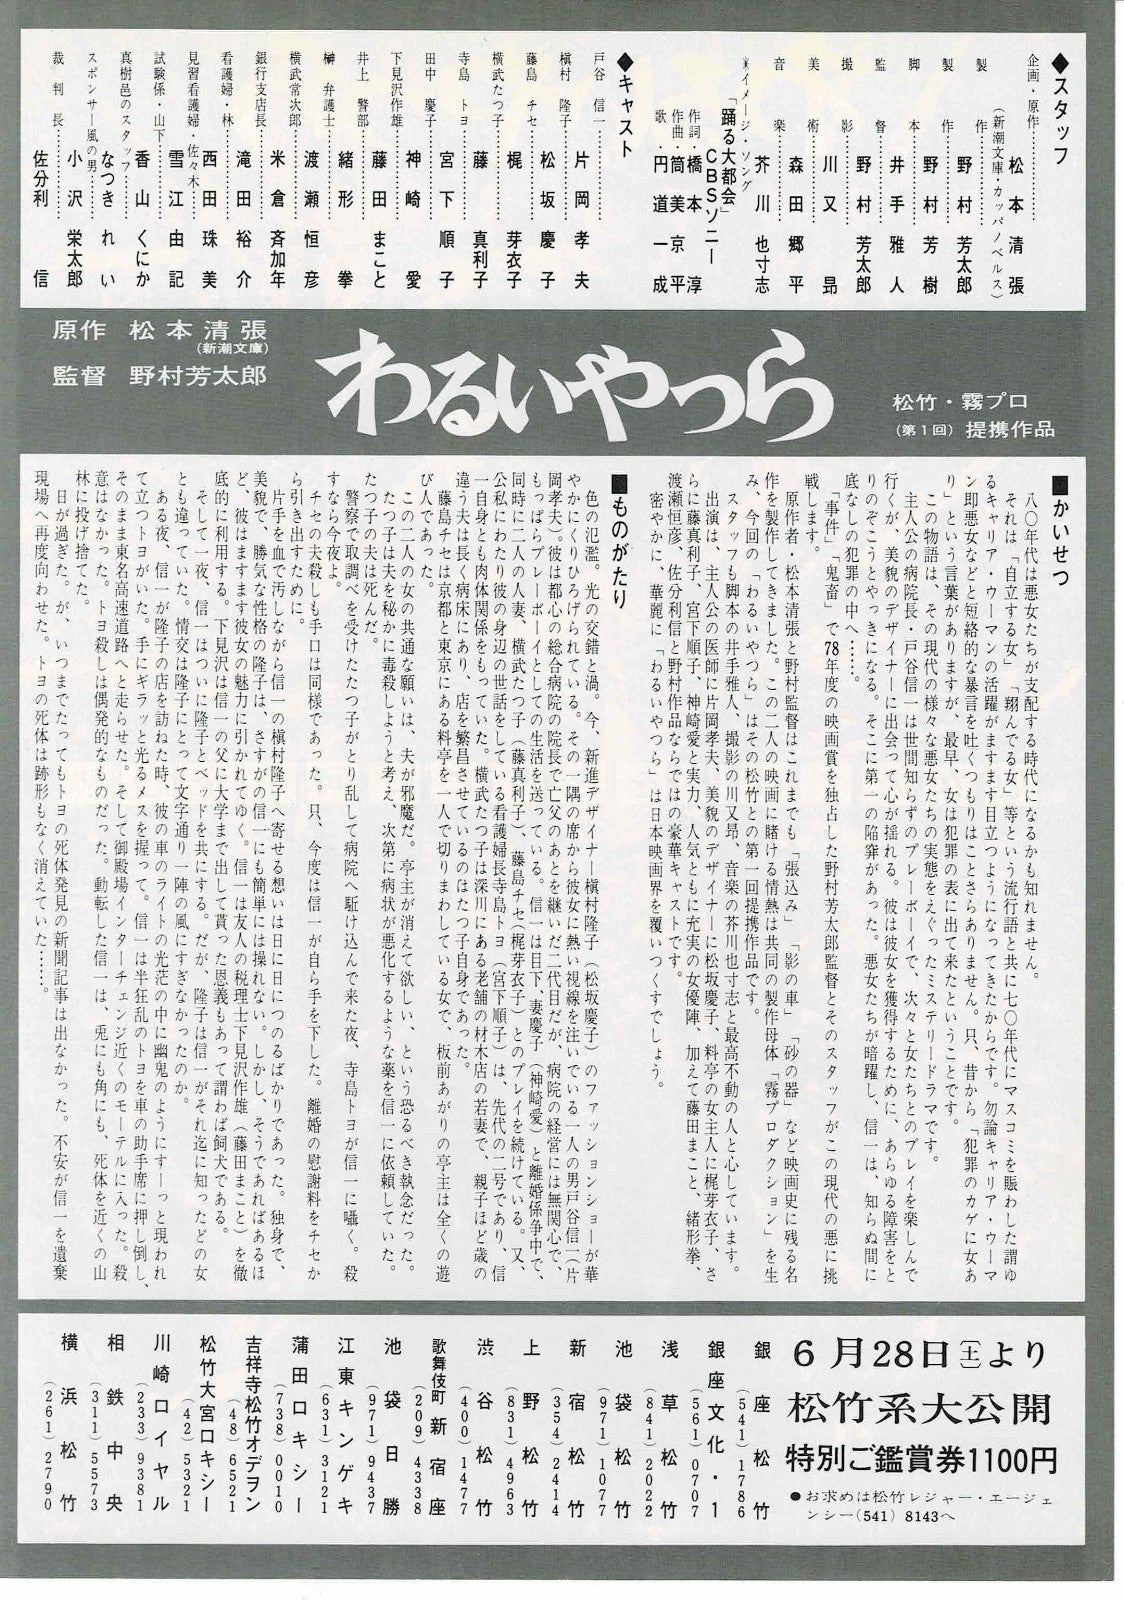 ◆スタッフ
企画・原作………松本清張
(新潮文庫・カッパノベルス)
製作………野村芳太郎
製作………野村芳樹
脚本………井手雅人
監督………野村芳太郎
撮影………川又昂
美術………森田郷平
音楽………芥川也寸志
★イメージ・ソング
「踊る大都会」
CBSソニー
作詞・橋本淳
作曲・筒美京平
歌・円道一成
◆キャスト
戸谷信一………片岡孝夫
槇村隆子………松坂慶子
藤島チセ………梶芽衣子
横武たつ子………藤真利子
寺島トヨ………宮下順子
田中慶子………神崎愛
下見沢作雄………藤田まこと
井上警部………緒形拳
榊弁護士………渡瀬恒彦
横武常次郎………米倉斉加年
銀行支店長………滝田裕介
看護婦・林………西田珠美
見習看護婦・佐々木………雪江由記
試験係・山下………香山くにか
真樹邑のスタッフ………なつきれい
スポンサー風の男………小沢栄太郎
裁判長………佐分利信
原作 松本清張
(新潮文庫)
監督 野村芳太郎
わるいやつら
松竹・霧プロ
(第1回)提携作品
■かいせつ
八〇年代は悪女たちが支配する時代になるかも知れません。
それは「自立する女」「翔んでる女」等という流行語と共に七〇年代にマスコミを賑わした謂ゆ
るキャリア・ウーマンの活躍がますます目立つようになってきたからです。勿論キャリア・ウーマ
ン即悪女などと短絡的な暴言を吐くつもりはことさらありません。只、昔から「犯罪のカゲに女あ
り」という言葉がありますが、最早、女は犯罪の表に出て来たということです。
この物語は、その現代の様々な悪女たちの実態をえぐったミステリードラマです。
主人公の病院長・戸谷信一は世間知らずのプレーボーイで、次々と女たちとのプレイを楽しんで
行くが、美貌のデザイナーに出会って心が揺れる。彼は彼女を獲得するために、あらゆる障害をと
りのぞこうとやっきになる。そこに第一の陥穽があった。悪女たちが暗躍し、信一は、知らぬ間に
底なしの犯罪の中へ……。
「事件」「鬼畜」で78年度の映画賞を独占した野村芳太郎監督とそのスタッフがこの現代の悪に挑
戦します。
原作者・松本清張と野村監督はこれまでも「張込み」「影の車」「砂の器」など映画史に残る名
作を製作してきました。この二人の映画に賭ける情熱は共同の製作母体「霧プロダクション」を生
み、今回の「わるいやつら」はその松竹との第一回提携作品です。
スタッフも脚本の井手雅人、撮影の川又昂、音楽の芥川也寸志と最高不動の人と心しています。
出演は、主人公の医師に片岡孝夫、美貌のデザイナーに松坂慶子、料亭の女主人に梶芽衣子、さ
らに藤真利子、宮下順子、神崎愛と実力、人気ともに充実の女優陣、加えて藤田まこと、緒形拳、
渡瀬恒彦、佐分利信と野村作品ならではの豪華キャストです。
密やかに、華麗に「わるいやつら」は日本映画界を覆いつくすでしょう。
■ものがたり
色の氾濫。光の交錯と渦。今、新進デザイナー槇村隆子(松坂慶子)のファッションショーが華
やかにくりひろげられている。その一隅の席から彼女に熱い視線を注いでいる一人の男戸谷信一(片
岡孝夫)。彼は都心の総合病院の院長で亡父のあとを継いだ二代目だが、病院の経営には無関心で、
もっぱらプレーボーイとしての生活を送っている。信一は目下、妻慶子(神崎愛)と離婚係争中で、
同時に二人の人妻、横武たつ子(藤真利子)、藤島チセ(梶芽衣子)とのプレイを続けている。又、
公私にわたり彼の身辺の世話をしている看護婦長寺島トヨ(宮下順子)は、先代の二号であり、信
一自身とも肉体関係をもっていた。横武たつ子は深川にある老舗の材木店の若妻で、親子ほど歳の
違う夫は長く病床にあり、店を繁昌させているのはたつ子自身であった。
藤島チセは京都と東京にある料亭を一人で切りまわしている女で、板前あがりの亭主は全くの遊
び人であった。
この二人の女の共通な願いは、夫が邪魔だ。亭主が消えて欲しい、という恐るべき執念だった。
たつ子は夫を秘かに毒殺しようと考え、次第に病状が悪化するような薬を信一に依頼していた。
たつ子の夫は死んだ。
警察で取調べを受けたたつ子がとり乱して病院へ駆け込んで来た夜、寺島トヨが信一に囁く。殺
すなら今夜よ。
チセの夫殺しも手口は同様であった。只、今度は信一が自ら手を下した。離婚の慰謝料をチセか
ら引き出すために。
片手を血で汚しながら信一の槇村隆子へ寄せる想いは日に日につのるばかりであった。独身で、
美貌で、勝気な性格の隆子は、さすがの信一にも簡単には操れない。しかし、そうであればあるほ
ど、彼はますます彼女の魅力に引かれてゆく。信一は友人の税理士下見沢作雄(藤田まこと)を徹
底的に利用する。下見沢は信一の父に大学まで出して貰った恩義もあって謂わば飼犬である。
そして一夜、信一はついに隆子とベッドを共にする。だが、隆子は信一がそれ迄に知ったどの女
とも違っていた。情交は隆子にとって文字通り一陣の風にすぎなかったのか。
ある夜、信一が隆子の店を訪ねた時、彼の車のライトの光茫の中に幽鬼のようにすーっと現われ
て立つトヨがいた。手にギラッと光るメスを握って。信一は半狂乱のトヨを車の助手席に押し倒し、
そのまま東名高速道路へと走らせた。そして御殿場インターチェンジ近くのモーテルに入った。殺
意はなかった。トヨ殺しは偶発的なものだった。動転した信一は、兎にも角にも、死体を近くの山
林に投げ捨てた。
日が過ぎた。が、いつまでたってもトヨの死体発見の新聞記事は出なかった。不安が信一を遺棄
現場へ再度向わせた。トヨの死体は跡形もなく消えていた……。
6月28日(土)より
松竹系大公開
特別ご鑑賞券1100円
●お求めは松竹レジャー・エージェ
ンシー(541)8143へ
銀座松竹 (541)1786
銀座文化・1 (561)0707
浅草松竹 (841)2022
池袋松竹 (971)1077
新宿松竹 (354)2414
上野松竹 (831)4963
渋谷松竹 (400)1477
歌舞伎町新宿座 (209)4338
池袋日勝 (971)9437
江東キンゲキ (631)3121
蒲田ロキシー (738)0010
吉祥寺松竹オデヲン (48)6521
松竹大宮ロキシー (42)5321
川崎ロイヤル (233)9381
相鉄中央 (311)5573
横浜松竹 (261)2790